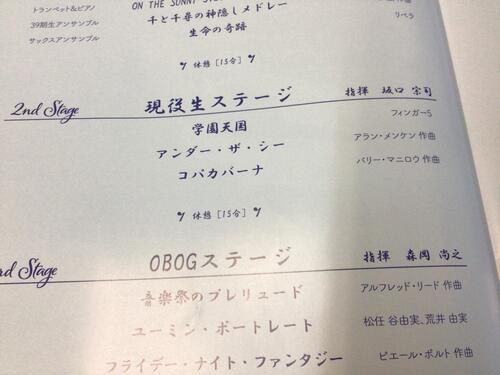 トランペット&ピアノ
ON THE SUNNY
作曲
39期生アンサンブル
千と千尋の神隠しメドレー
リベラ
サックスアンサンブル
生命の奇跡
休憩［15分］
2nd Stage 現役生ステージ 指揮 坂口 宗司
学園天国 フィンガー5
アンダー・ザ・シー アラン・メンケン 作曲
コパカバーナ バリー・マニロウ 作曲
休憩［15分］
rd Stage OBOGステージ 指揮 森岡 尚之
音楽祭のプレリュード アルフレッド・リード 作曲
ユーミン・ポートレート 松任谷由実、荒井 由実
フライデー・ナイト・ファンタジー ピエール・ポルト 作曲